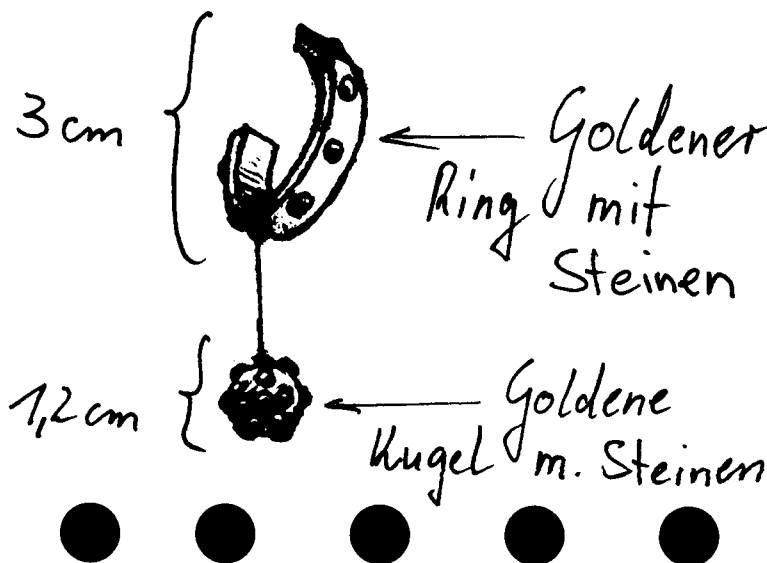 3 cm
Goldener
Ring mit
Steinen
1,2 cm
Goldene
Kugel m. Steinen